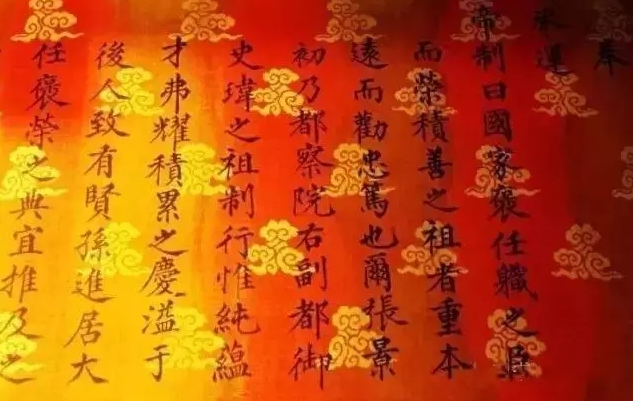 奉
承運
帝制曰國家褒任職之臣
而榮積善之祖者重本
遠而勸忠篤也爾張景
初乃都察院右副都御
史瑋之祖制行惟純蘊
才弗耀積累之慶溢于
後人致有賢孫進居大
任褒榮之典宜推及之